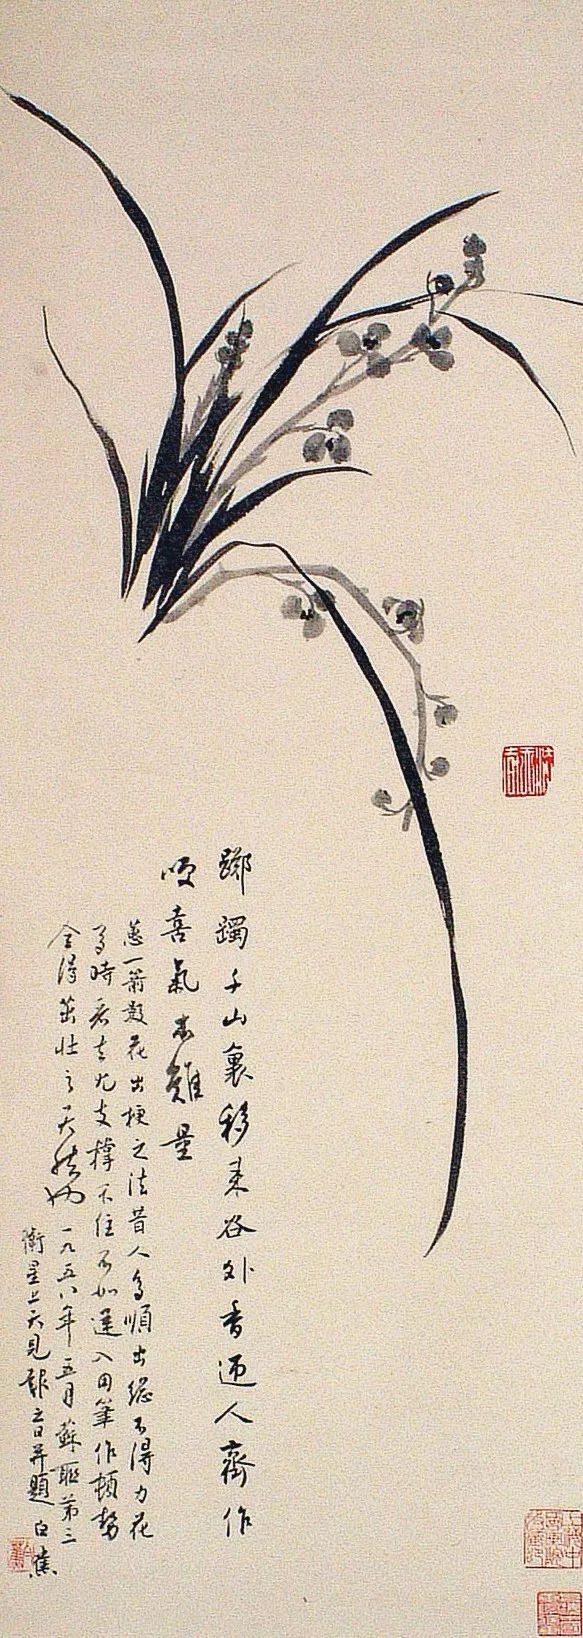 踯躅千山裏移来谷外香迎人齊作
咲喜氣未難量
蕙一箭数花出梗之法昔人多順出總不得力花
多時看去尤支撑不住不如逆入用筆作頓勢
全得茁壮之天然也一九五八年五月蘇聯第三
衛星上天見報之日并題白蕉